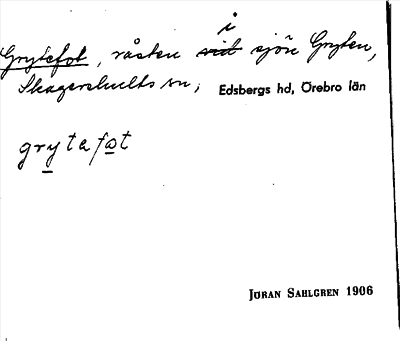 i
Grytefot, råsten vid sjön Gryten,
Skagershults sn; Edsbergs hd, Örebro län
grytafot
JÖRAN SAHLGREN 1906